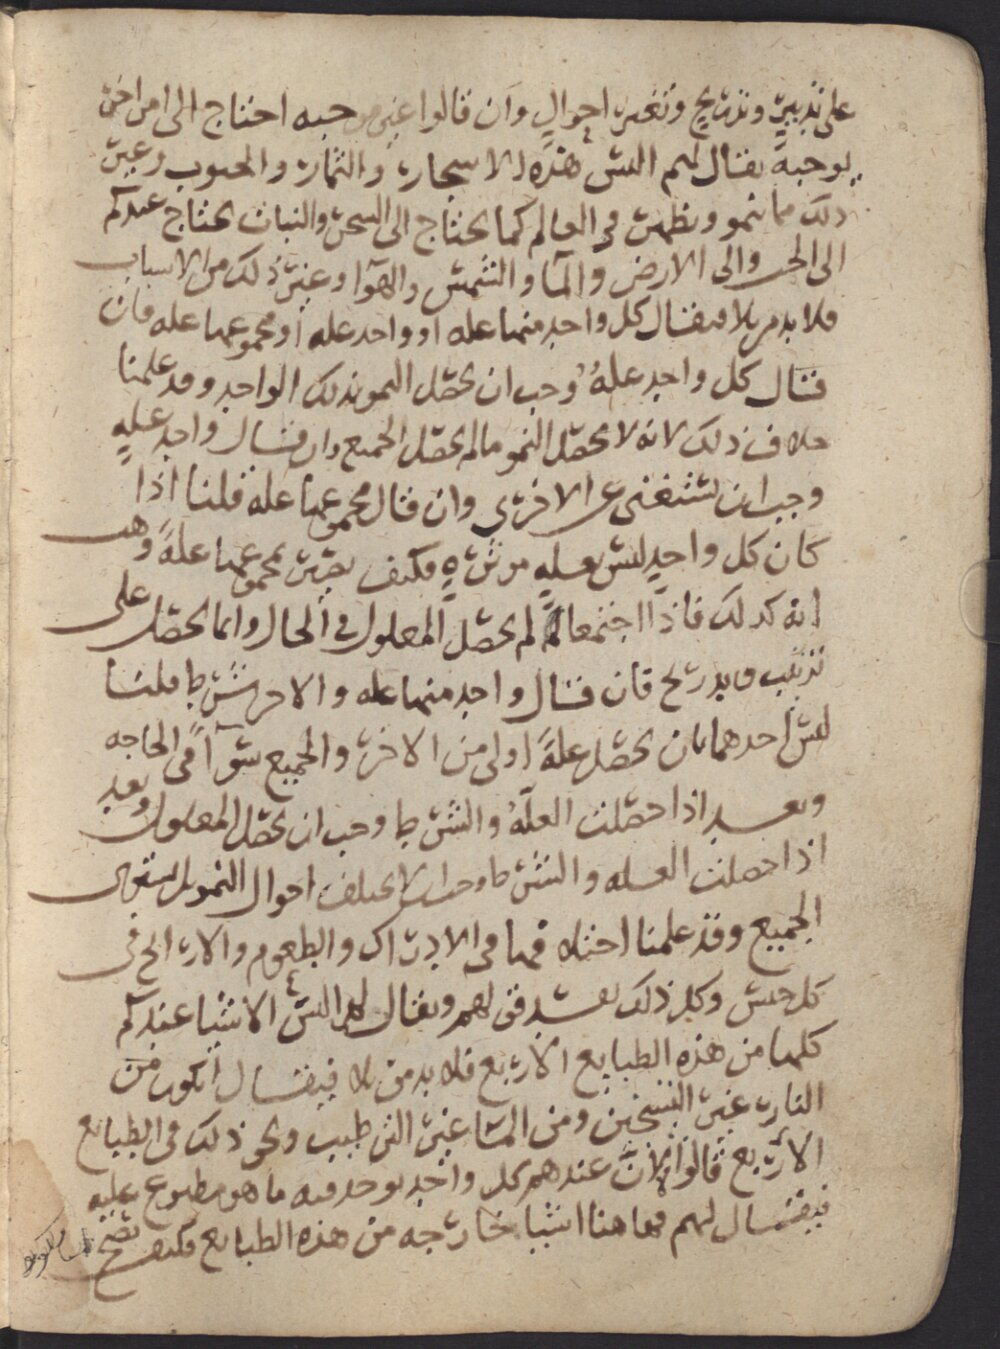 على تدبير وتدريج وتغير احوال وان قالوا غير موجبه احتاج الى امر اخر
يوجبه يقال لهم اليس هذه الاسجار والثمار والحبوب وغير
ذلك مما ينمو ويظهر في العالم كما يحتاج الى السحر والنبات يحتاج عندكم
الى الحر والى الارض والما والشمس والهوآ وغير ذلك من الاسباب
فلا بد من بلا فيقال كل واحد منها عله او واحد عله او مجموعها عله فان
قال كل واحد علهُ وجب ان يحصل النمو بذلك الواحد وقد علمنا
خلاف ذلك لانه لا يحصل النمو مالم يحصل الجميع وان قال واحد علهٍ
وجب ان يستغنى عن الاخرى وان قال مجموعها عله قلنا اذا
كان كل واحدٍ ليس بعلهٍ فكيف يصير مجموعها علهً وهب
انه كذلك فاذا اجتمعا لم يحصل المعلول في الحال وانما يحصل على
ترتيب وتدريج فان قال واحد منها عله والاخر شرط قلنا
ليس احدهما بان يحصل علهً اولى من الاخر والجميع سوآ في الحاجه
وبعد اذا حصلت العلهُ والشرط وجب ان يحصل المعلول وبعد
اذا حصلت العله والشرط وجب ان لا يختلف احوال النمو بل يستوى
الجميع وقد علمنا اختلافها في الادراك والطعوم والاراىح في
كل جنس وكل ذلك يفسد قولهم ويقال لهم اليس الاشيا عندكم
كلها من هذه الطبايع الاربع فلا بد من بلا فيقال ايكون من
النار غير التسخين ومن الما غير الترطيب ونحو ذلك في الطبايع
الأربع قالوا لا لان عندهم كل واحد يوجد فيه ما هو مطبوع عليه
فيقال لهم فهاهنا اشيا خارجه من هذه الطبايع فكيف يصح